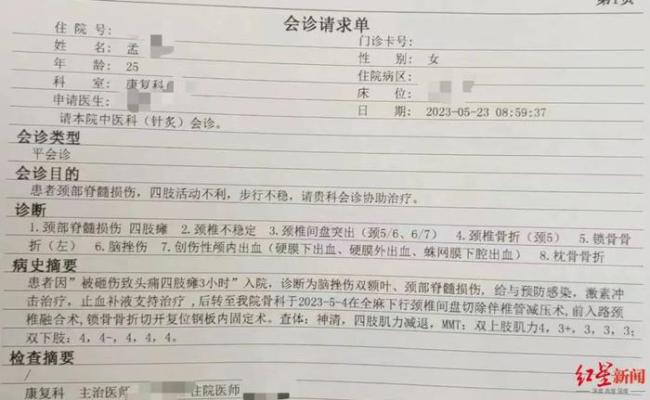 会诊请求单
住 院 号:
姓 名: 孟
门诊卡号:
年 龄: 25
性 别: 女
科 室: 康复科
住院病区:
申请医生:
床 位:
日 期: 2023-05-23 08:59:37
请本院中医科(针灸)会诊。
会诊类型
平会诊
会诊目的
患者颈部脊髓损伤，四肢活动不利，步行不稳，请贵科会诊协助治疗。
诊断
1.颈部脊髓损伤 四肢瘫 2.颈椎不稳定 3.颈椎间盘突出（颈5/6、6/7） 4.颈椎骨折（颈5） 5.锁骨骨
折（左） 6.脑挫伤 7.创伤性颅内出血（硬膜下出血、硬膜外出血、蛛网膜下腔出血） 8.枕骨骨折
病史摘要
患者因"被砸伤致头痛四肢瘫3小时"入院，诊断为脑挫伤双额叶、颈部脊髓损伤，给与预防感染，激素冲
击治疗，止血补液支持治疗,后转至我院骨科于2023-5-4在全麻下行颈椎间盘切除伴椎管减压术,前入路颈
椎融合术,锁骨骨折切开复位钢板内固定术。查体：神清，四肢肌力减退，MMT：双上肢肌力4, 3+, 3, 3, 3;
双下肢：4, 4-, 4, 4, 4。
检查摘要
/
康复科 主治医师 住院医师
红星新闻